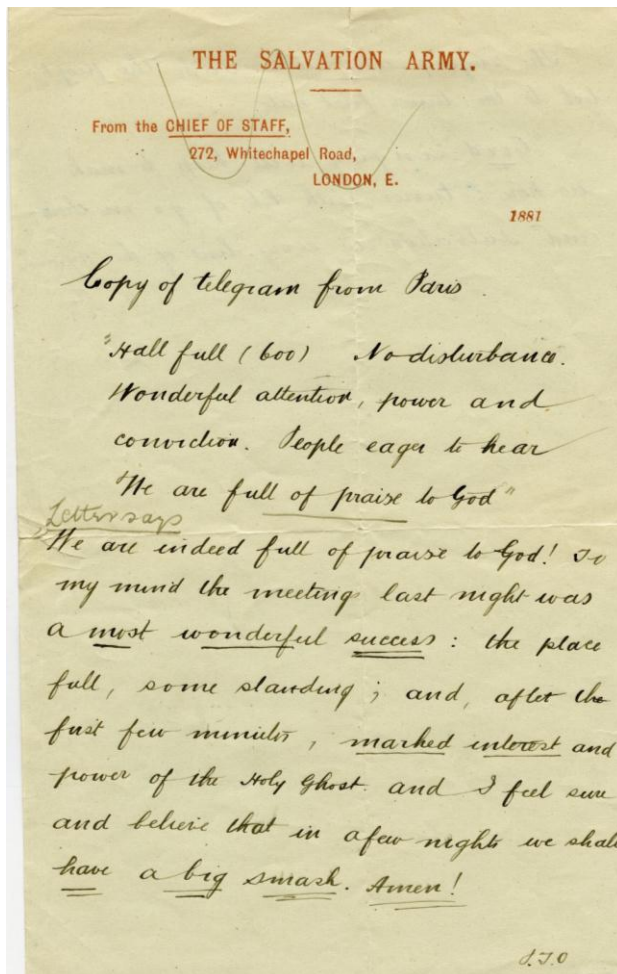 THE SALVATION ARMY.
From the CHIEF OF STAFF,
272, Whitechapel Road,
LONDON, E.
1881
Copy of telegram from Paris.
"Hall full (600) No disturbance.
Wonderful attention, power and
conviction. People eager to hear
"We are full of praise to God"
Letter says
We are indeed full of praise to God! To
my mind the meeting last night was
a most wonderful success: the place
full, some standing; and, after the
first few minutes, marked interest and
power of the Holy Ghost. and I feel sure
and believe that in a few nights we shall
have a big smash. Amen!
P.T.O